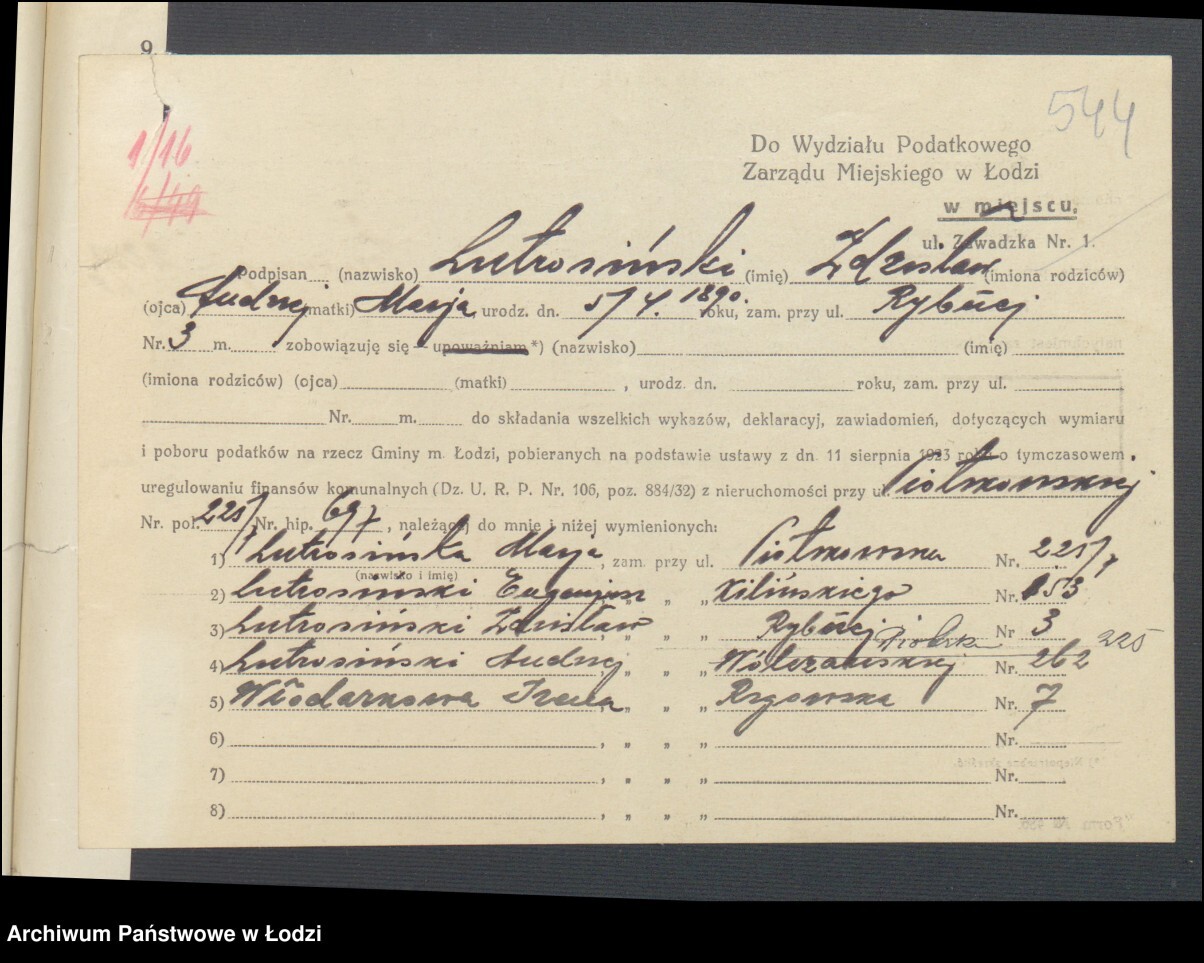 9.
1/16
544
Do Wydziału Podatkowego
Zarządu Miejskiego w Łodzi
w miejscu,
ul. Zawadzka Nr. 1.
Podpisan (nazwisko) Lutrosiński (imię) Zdzisław (imiona rodziców)
(ojca) Andrzej (matki) Marja, urodz. dn. 5/4. 1890. roku, zam. przy ul. Rybnej
Nr. 3 m. zobowiązuję się — upoważniam *) (nazwisko) (imię)
(imiona rodziców) (ojca) (matki) , urodz. dn. roku, zam. przy ul.
Nr. m. do składania wszelkich wykazów, deklaracyj, zawiadomień, dotyczących wymiaru
i poboru podatków na rzecz Gminy m. Łodzi, pobieranych na podstawie ustawy z dn. 11 sierpnia 1923 roku o tymczasowem
uregulowaniu finansów komunalnych (Dz. U. R. P. Nr. 106, poz. 884/32) z nieruchomości przy ul. Piotrkowskiej
Nr. pol. 225/7 Nr. hip. 697, należącej do mnie i niżej wymienionych:
1) Lutrosińska Marja, zam. przy ul. Piotrkowska Nr. 225/7
(nazwisko i imię)
2) Lutrosiński Eugenjusz „ „ „ Kilińskiego Nr. 153
3) Lutrosiński Zdzisław „ „ „ Rybnej Nr 3
Piotrk 225
4) Lutrosiński Andrzej, „ „ „ Wólczańskiej Nr. 262
5) Włodarkowa Irena, „ „ „ Rzgowska Nr. 7
6) , „ „ „ Nr.
7) , „ „ „ Nr.
8) , „ „ „ Nr.
Archiwum Państwowe w Łodzi